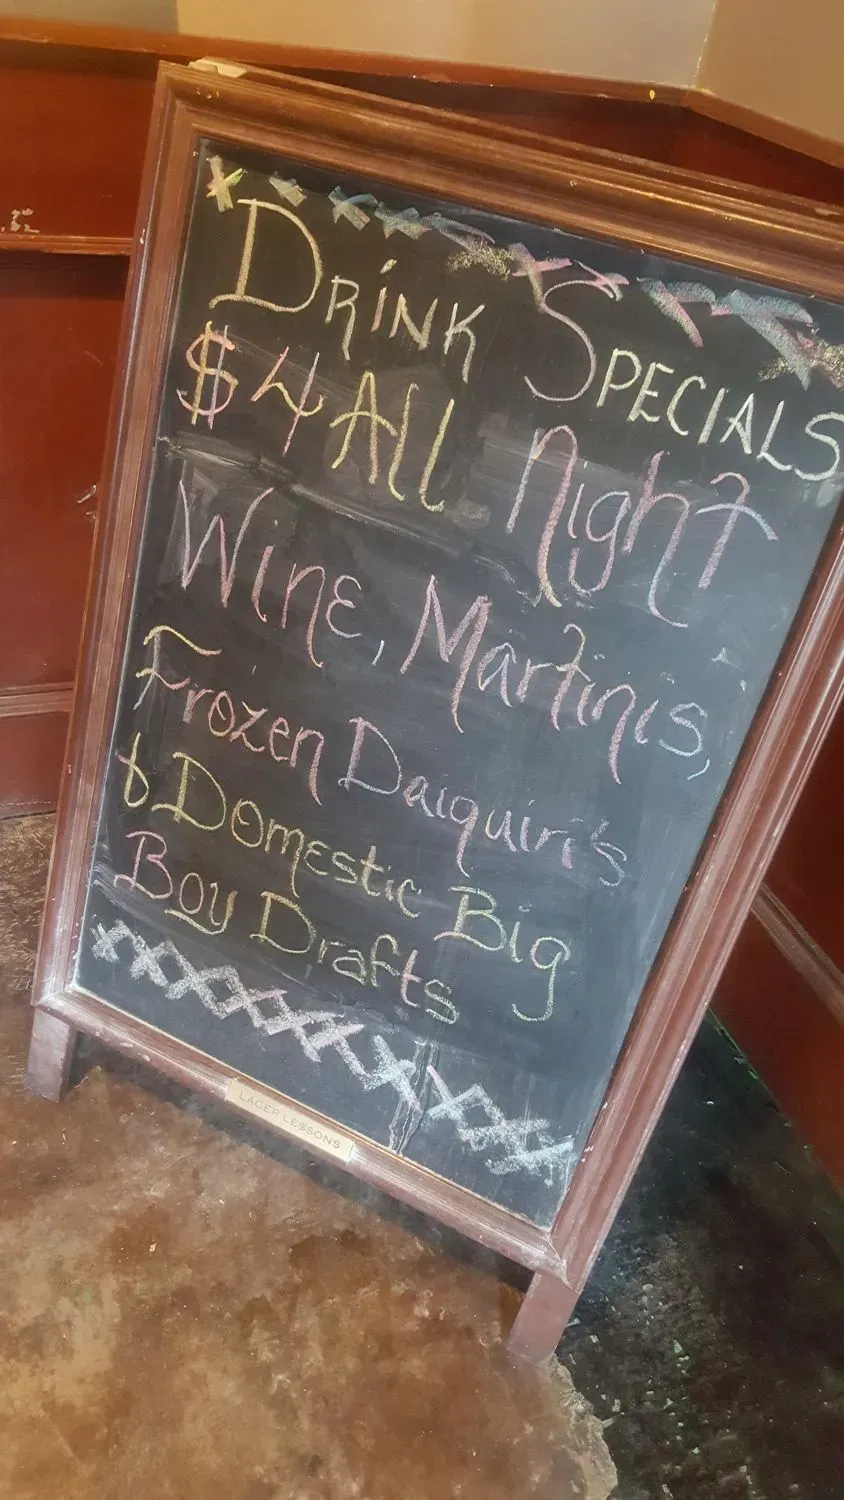 Drink Specials
$4 All Night
Wine, Martinis,
Frozen Daiquiri's
& Domestic Big
Boy Drafts
LAGER LESSONS